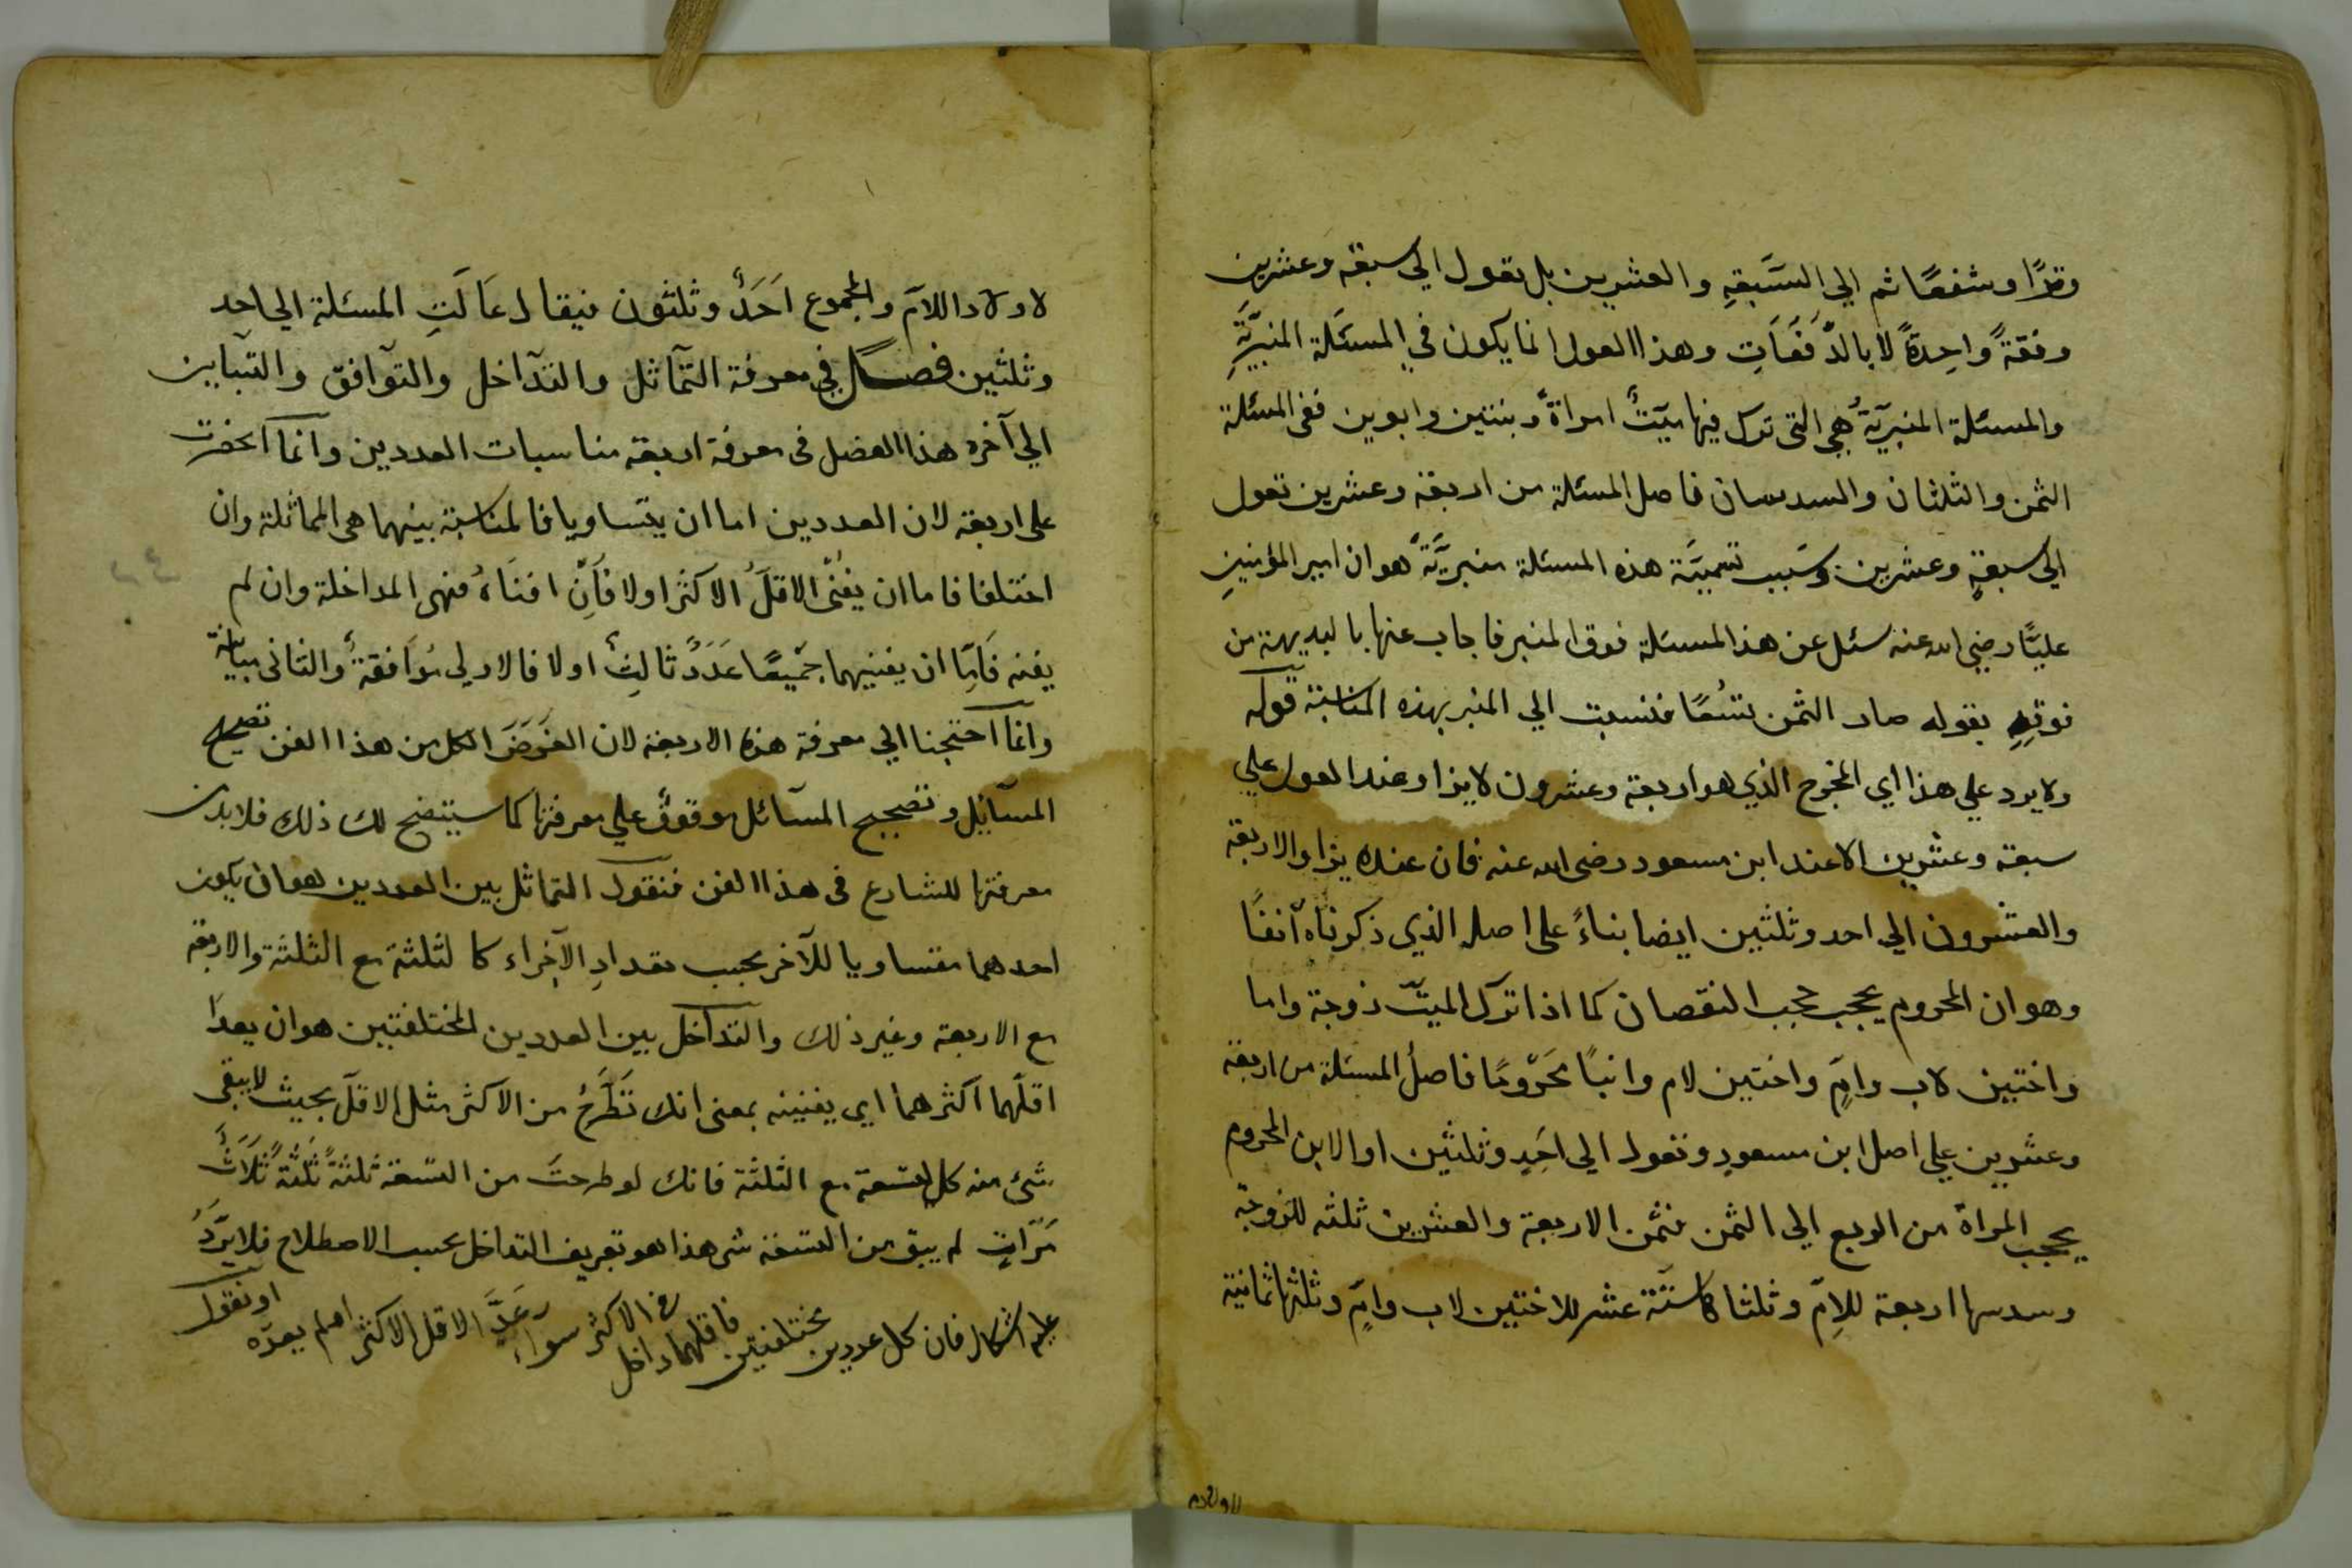 وترًا وشفعًا ثم الي السَّبعَةِ والعشرين بل تعول الي سبعة وعشرين
دفعةً واحِدةً لا بالدَّفَعَاتِ وهذا العول انما يكون في المسئَلة المنبرِيَّةِ
والمسئلة المنبريّةُ هي التي ترك فيها ميّتٌ امراةً وبنتين وابوين ففي المسئلة
الثمن والثلثان والسدسان فاصل المسئلة من اربعة وعشرين تعول
الي سبعةٍ وعشرين وسَبب تسميَّة هذه المسئلة منبريَّةً هو ان امير المؤمنين
عليًّا رضي الله عنه سئل عن هذا المسئلة فوق المنبر فاجاب عنها بالبديهة من
فوقِهِ بقوله صار الثمن تسُعًا فنسبت الي المنبر بهذه المناسبة قوله
ولا يرد علي هذا اي المخرج الذي هو اربعة وعشرون لا يزاد عند العول علي
سبعة وعشرين الا عند ابن مسعود رضي الله عنه فان عنده يزاد الاربعة
والعشرون الي احد وثلثين ايضا بناءً علي اصله الذي ذكرناه آنفًا
وهو ان المحروم يحجب حجب النقصان كما اذا ترك الميّت زوجة واما
واختين لاب وامٍّ واختين لام وابنًا مَحرُومًا فاصلُ المسئلة من اربعة
وعشرين علي اصل ابن مسعودٍ وتعول الي احَدٍ وثلثين اذ الابن المحروم
يحجب المراة من الربع الي الثمن فثمن الاربعة والعشرين ثلثه للزوجة
وسدسها اربعة للامّ وثلثاها ستّة عشر للاختين لاب وامٍّ وثلثها ثمانية
لاولادم
لاولاد اللامّ والمجموع اَحَدٌ وثلثون فيقال عَالَتِ المسئلة الي احد
وثلثين فصل في معرفة التّماثل والتّداخل والتّوافق والتّباين
الي آخره هذا الفصل في معرفة اربعة مناسبات العددين وانّما انحصرت
علي اربعة لان العددين اما ان يتساويا فالمناسبة بينهما هي المماثلة وان
اختلفا فاما ان يفنَي الاقلُّ الاكثر اولا فاِن افنَاهُ فهي المداخلة وان لم
يفنه فَاِمّا ان يفنيهما جَميعًا عَدَدٌ ثالِثٌ اولا فالاولي مُوَافقةٌ والثاني مباينة
وانّما احتجنا الي معرفة هذه الاربعة لان الغَرَضَ الكل من هذا الفن تصحيح
المسائل وتصحيح المسائل موقوفٌ علي معرفتها كما سيتضح لك ذلك فلا بد من
معرفتها للشارع في هذا الفن فنقول التماثل بين العددين هو ان يكون
احدهما متساويا للآخر بحسب مقدادِ الآجزاء كالثلثة مع الثلثة والاربعة
مع الاربعة وغير ذلك والتداخل بين العددين المختلفتين هو ان يعدَّ
اقلّهما اكثرهما اي يفنينه بمعني انك تَطْرَحُ من الاكثر مثل الاقلّ بحيث لا يبقي
شئ منه كالتسعة مع الثلثة فانك لو طرحتَ من التسعة ثلثةً ثَلثَةً ثلَاثَ
مَرّاتٍ لم يبق من التسعة شي هذا هو تعريف التداخل بحسب الاصطلاح فلا يَرِدُ
عليه اشكال فان كل عددين مختلفتين فاقلهما داخل في الاكثر سواء عَدَّ الاقل الاكثر ام لم يعدّه او نقول